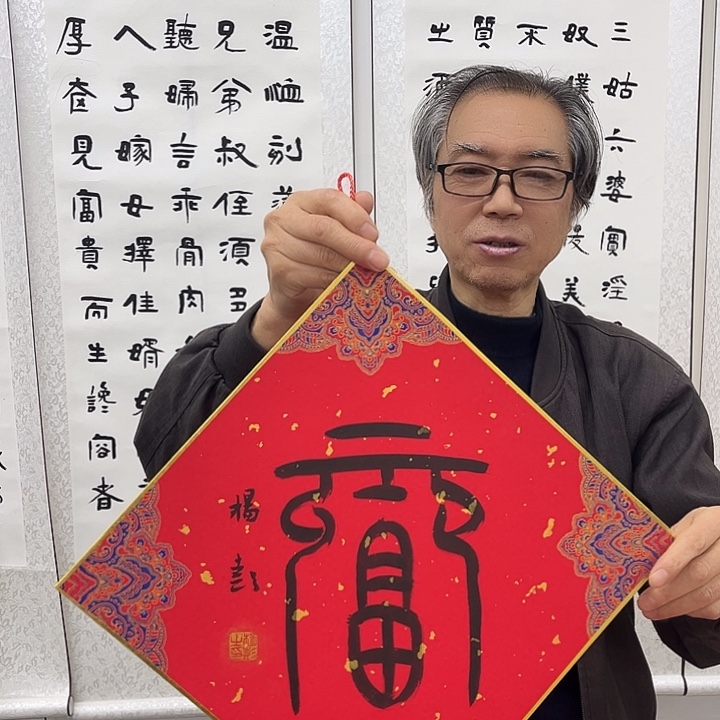 三姑六婆實淫
奴僕
美
不
質
之
温恤刻
兄弟叔侄須多
聽婦言乖骨肉
人子嫁女擇佳婿毋
厚奩見富貴而生諂容者
富
楊彭